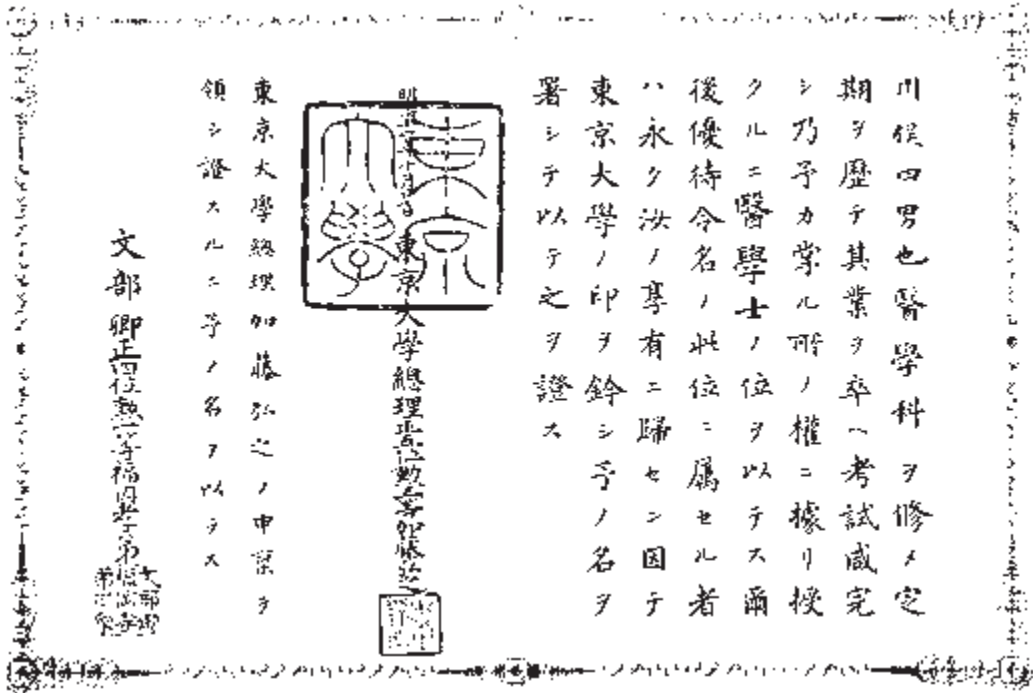 川俣四男也醫學科ヲ修メ定
期ヲ歴テ其業ヲ卒ヘ考試咸完
シ乃予カ掌ル所ノ權ニ據リ授
クルニ醫學士ノ位ヲ以テス爾
後優待令名ノ此位ニ属セル者
ハ永ク汝ノ享有ニ歸セン因テ
東京大學ノ印ヲ鈐シ予ノ名ヲ
署シテ以テ之ヲ證ス
東京大學總理正五位勲五等加藤弘之
東京大學總理加藤弘之ノ申禀ヲ
領シ證スルニ予ノ名ヲ以テス
文部卿正四位勲一等福岡孝弟